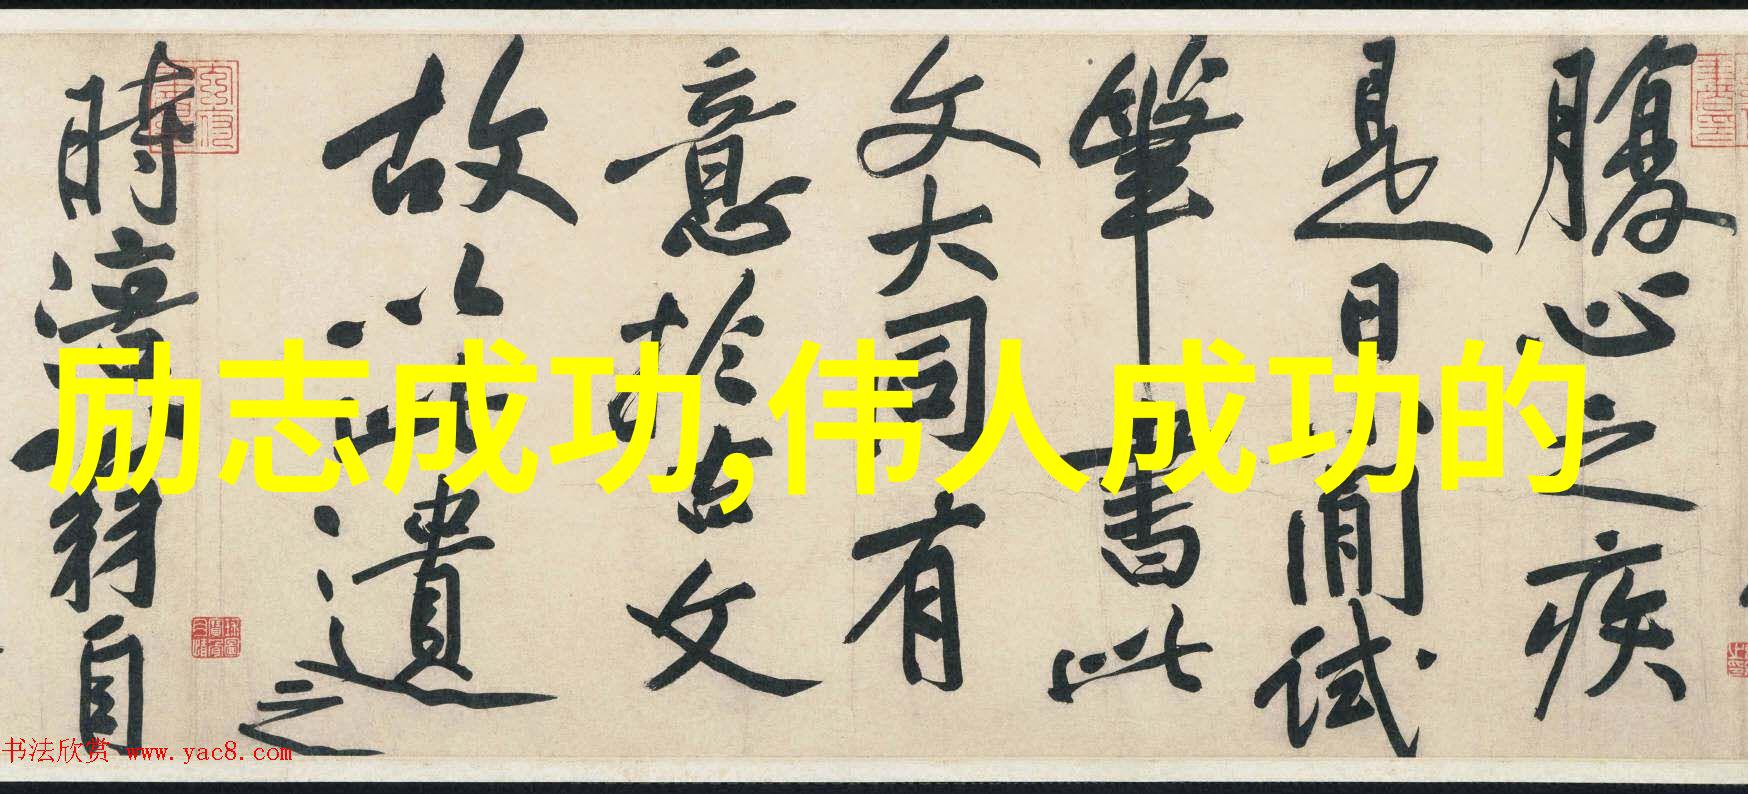 腹心之疾
是日小閒試
筆書此
文大同有
意於古文
故以此遺之
時涪翁自
励志成功,伟人成功的
书法欣赏 www.yac8.com